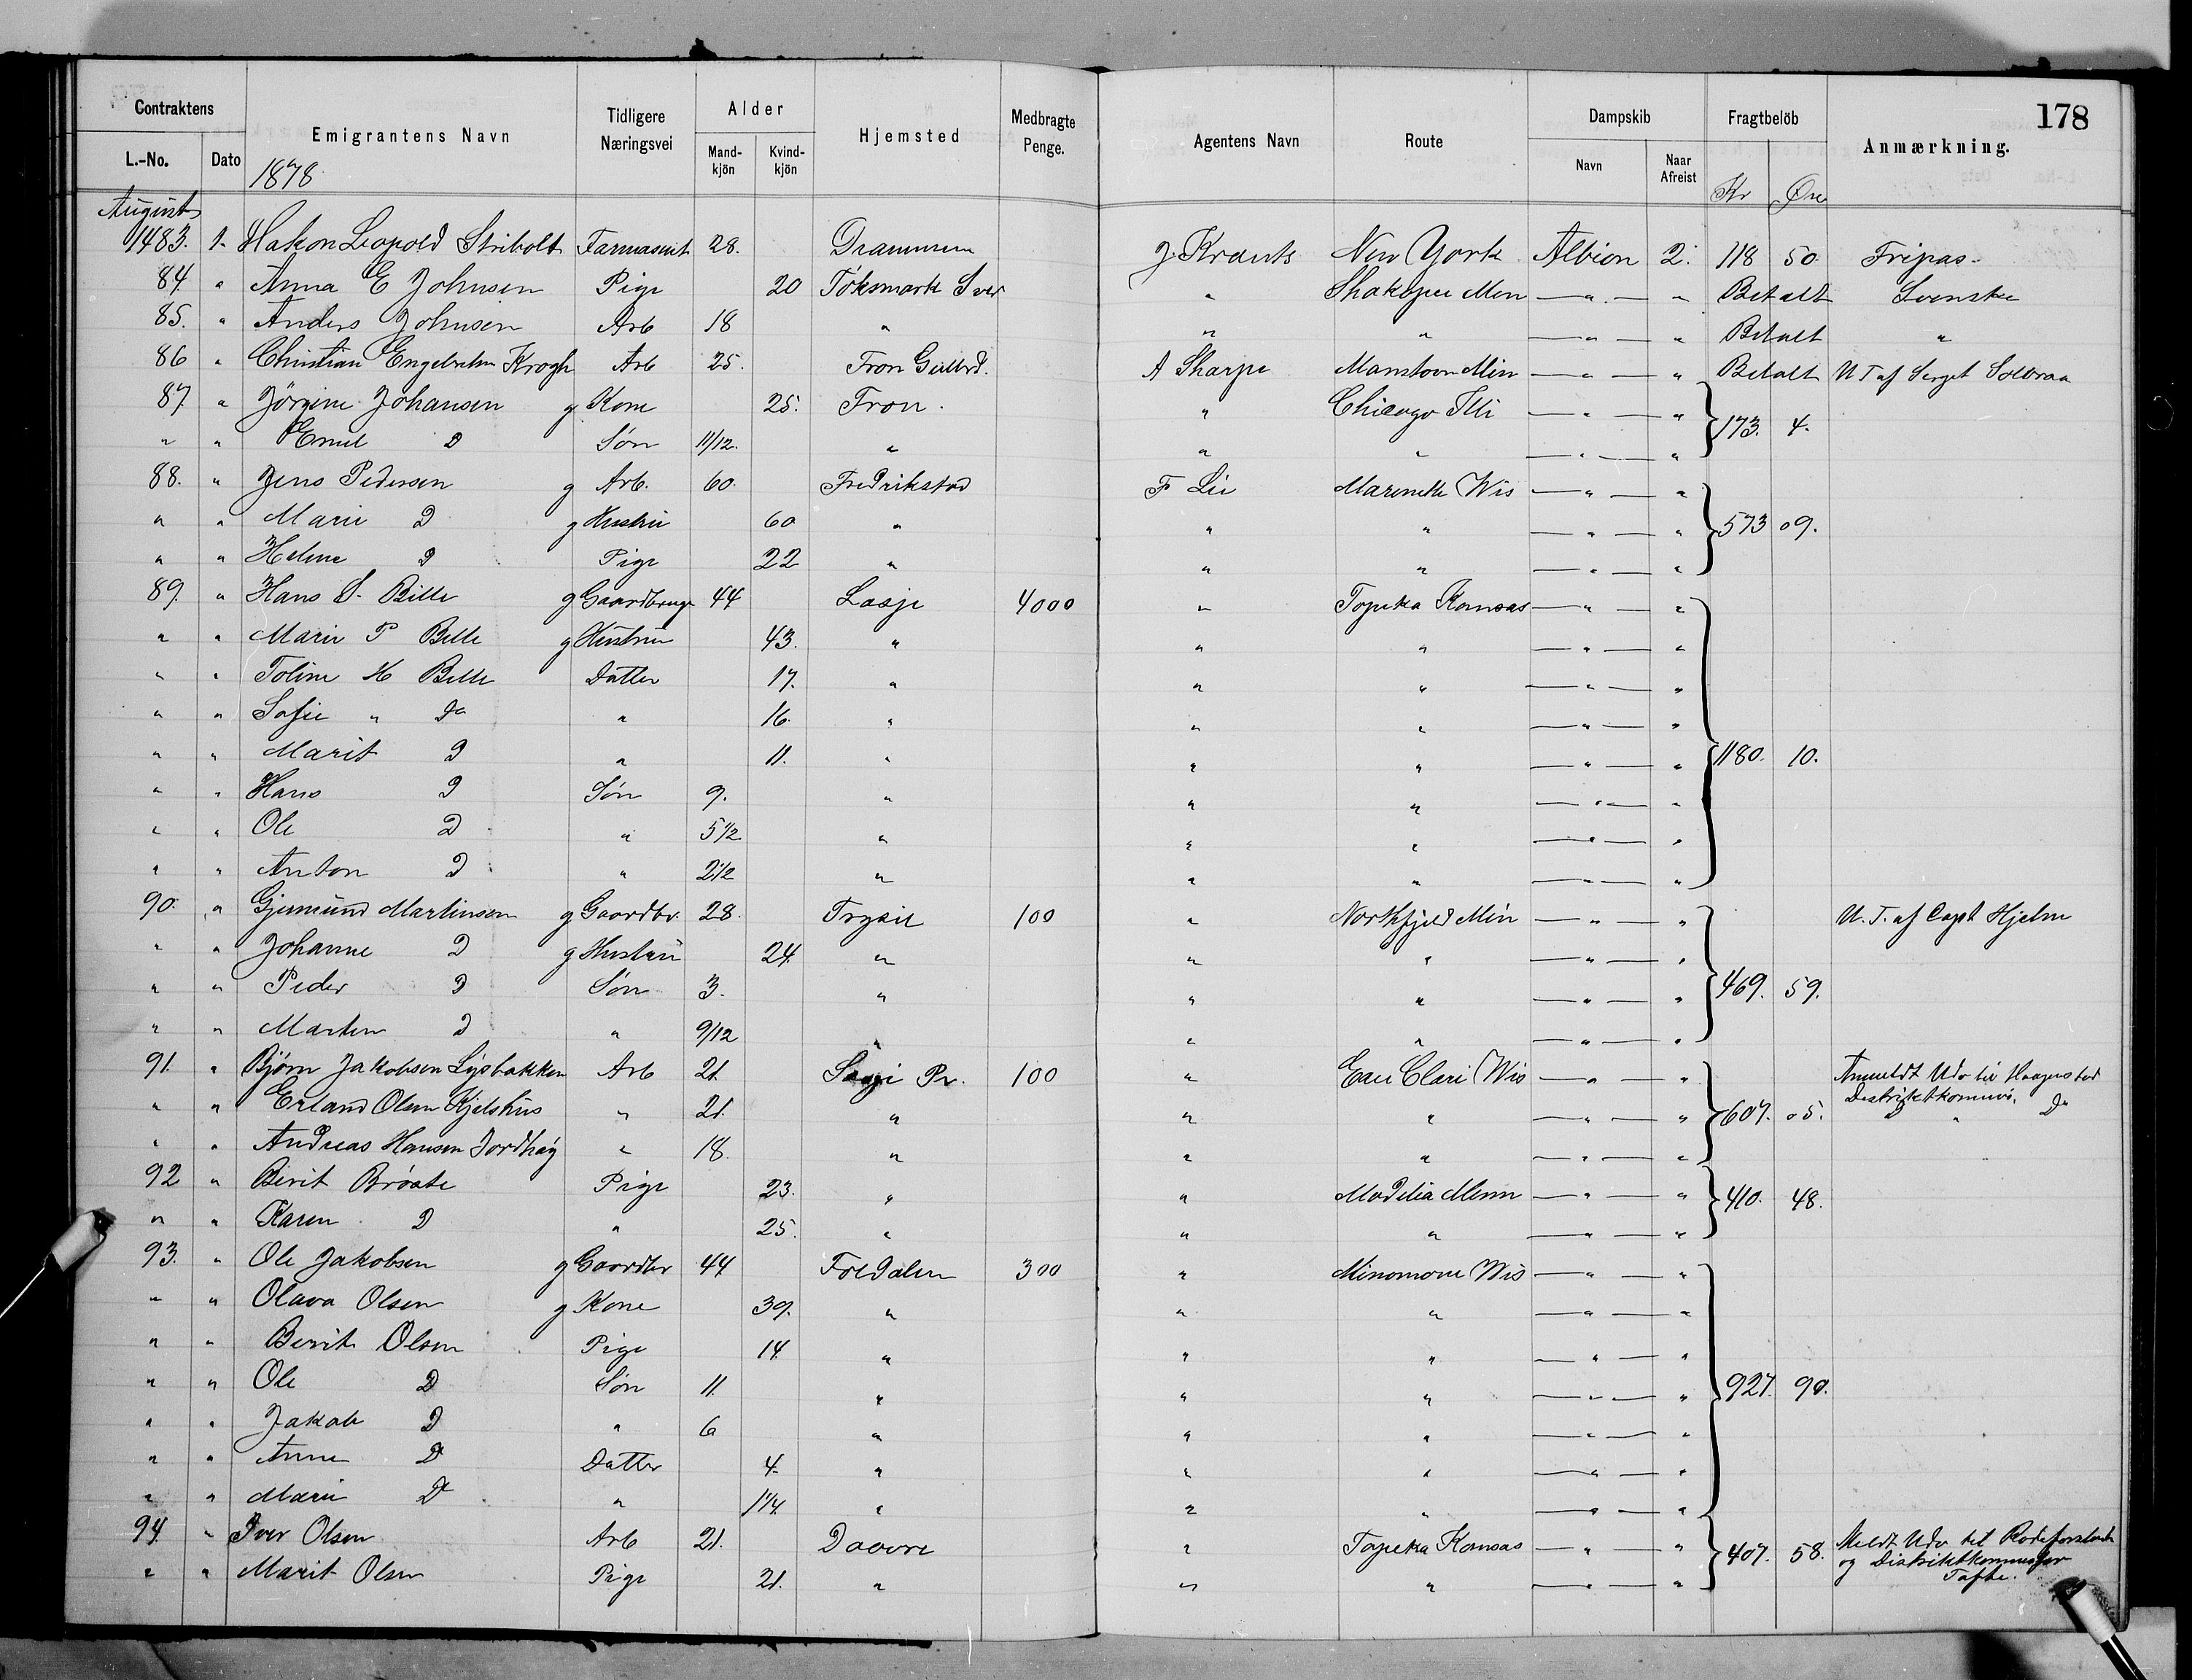 178
Contraktens L.-No. Dato Emigrantens Navn Tidligere Næringsvei Alder Mandkjön Kvindkjön Hjemsted Medbragte Penge. Agentens Navn Route Dampskib Navn Naar Afreist Fragtbelöb Kr Øre Anmærkning.
1878
August
1483. 1. Hakon Leopold Stribolt Farmaseut 28. Drammen J. Krants New York Albion 2. 118 50. Fripas.
84. " Anna E Johnsen Pige 20 Töksmark Sver " Shakopee Men — " — " Betalt Svenske
85. " Anders Johnsen Arb 18 " " " — " — " Betalt "
86 " Christian Engebretsen Krogh Arb 25. Fron Gulbrd. A Sharpe Manstown Min — " — " Betalt U T af Sergt Solbraa
87. " Jörgine Johansen g Kone 25. Fron. " Chicago Illi — " — " 173. 4.
" " Emil D Søn 11/12. " " " — " — "
88. " Jens Pedersen g Arb. 60. Fredrikstad F Lie Marinette Wis — " — "
" " Marie D g Hustru 60 " " " — " — " 573 09.
" " Helene D Pige 22 " " " — " — "
89. " Hans S. Bille g Gaardbruge 44 Lasje 4000 " Topeka Kansas — " — "
" " Marie P Bille g Hustru 43. " " " — " — "
" " Toline H Bille Datter 17. " " " — " — "
" " Sofie " Do " 16. " " " — " — "
" " Marit D " 11. " " " — " — " 1180. 10.
" " Hans D Søn 9. " " " — " — "
" " Ole D " 5 1/2 " " " — " — "
" " Anton D " 2 1/2 " " " — " — "
90. " Gjermund Martinsen g Gaardbr. 28. Trysil 100 " Northfjeld Min — " — " U. T. af Capt Hjelm
" " Johanne D g Hustru 24. " " " — " — "
" " Peder D Søn 3. " " " — " — " 469. 59.
" " Marten D " 9/12 " " " — " — "
91. " Bjørn Jakobsen Lysbakken Arb 21. Pr. 100 " Eau Clari Wis — " — " Anmeldt Udv til
Distriktkommis.
" " Erland Olsen Kjelshus " 21. " " " — " — " 607. 05. D " Do
" " Andreas Hansen Jordhøy " 18. " " " — " — "
92 " Berit Brøste Pige 23. " " Madelia Minn — " — " 410. 48.
" " Karen D " 25. " " " — " — "
93. " Ole Jakobsen g Gaardbr 44. Foldalen 300 " Minomone Wis — " — "
" " Olava Olsen g Kone 39. " " " — " — "
" " Berit Olsen Pige 14 " " " — " — "
" " Ole D Søn 11. " " " — " — " 927. 90.
" " Jakob D " 6 " " " — " — "
" " Anne D Datter 4. " " " — " — "
" " Marie D " 1 1/4. " " " — " — "
94. " Iver Olsen Arb 21. Dovre " Topeka Kansas — " — " 407. 58. Meldt Udv til
og Distriktkommisær
" " Marit Olsen Pige 21. " " " — " — " Tofte.